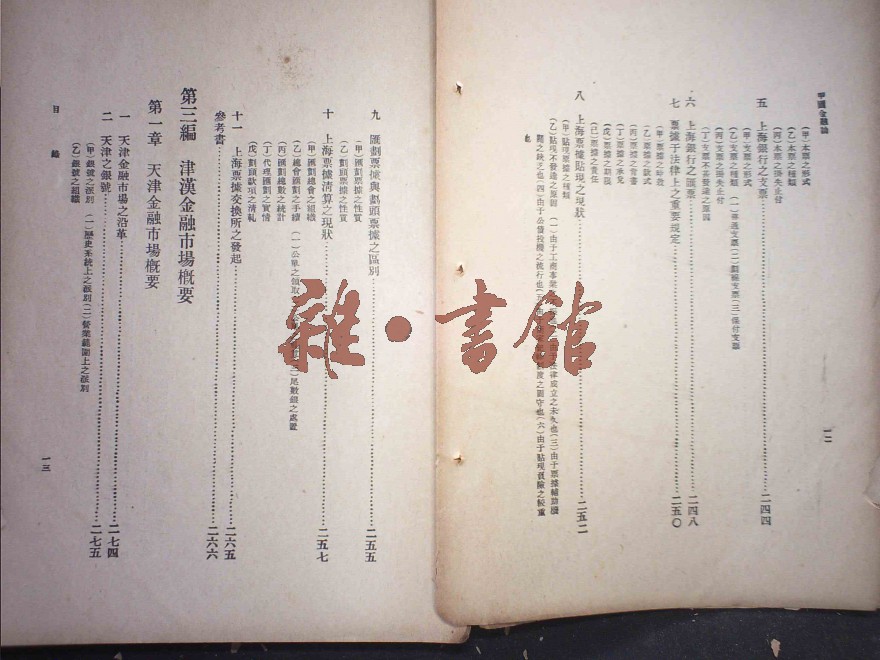 中國金融論
一二
(甲)本票之形式
(乙)本票之種類
(丙)本票之掛失止付
五 上海銀行之支票……二四四
(甲)支票之形式
(乙)支票之種類 (一)普通支票(二)劃線支票(三)保付支票
(丙)支票之掛失止付
(丁)支票不甚發達之原因
六 上海銀行之匯票……二四八
七 票據于法律上之重要規定……二五〇
(甲)票據之
(乙)票據之款式
(丙)票據之背書
(丁)票據之承兌
(戊)票據之期限
(己)票據之責任
八 上海票據貼現之現狀……二五二
(甲)貼現票據之種類
(乙)貼現不發達之原因 (一)由于工商事業 法律成立之未久也(三)由于票據輔助機
關之缺乏也(四)由于公債投機之流行也(五) 制度之固守也(六)由于貼現風險之較重
也
九 匯劃票據與劃頭票據之區別……二五五
(甲)匯劃票據之性質
(乙)劃頭票據之性質
十 上海票據清算之現狀……二五七
(甲)匯劃總會之組織
(乙)總會匯劃之手續 (一)公單之領取 (三)尾數銀之處置
(丙)匯劃總數之統計
(丁)代理匯劃之實情
(戊)劃頭款項之清軋
十一 上海票據交換所之發起……二六五
參考書……二六六
第三編 津漢金融市場概要
第一章 天津金融市場概要
一 天津金融市場之沿革……二七四
二 天津之銀號……二七五
(甲)銀號之派別 (一)歷史系統上之派別(二)營業範圍上之派別
(乙)銀號之組織
目錄
一三
雜·書館